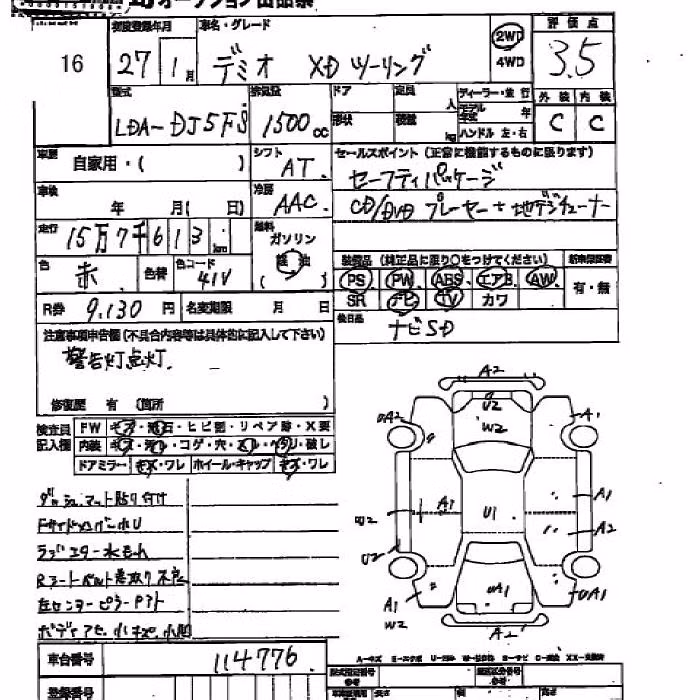 オークション出品票
16
初度登録年月 車名・グレード 評価点
27 1月 デミオ XDツーリング 2WD 4WD 3.5
型式 排気量 ドア 定員 人 ディーラー・並行 外装 内装
LDA-DJ5FS 1500cc 形状 積載 kg モデル年式 年 ハンドル 左・右 C C
車歴 自家用・( ) シフト AT セールスポイント (正常に機能するものに限ります)
セーフティパッケージ
車検 年 月( 日) 冷房 AAC CD/DVDプレーヤー+地デジチューナー
走行 15万7千613km 燃料 ガソリン 軽油 ( )
装備品 (純正品に限り○をつけてください) 新車保証書
色 赤 色替 色コード 41V PS PW ABS エアB AW 有・無
SR ナビ TV カワ
R券 9,130円 名変期限 月 日 後日品 ナビSD
注意事項申告欄(不具合内容等は具体的に記入して下さい)
警告灯点灯
修復歴 有 (箇所 )
検査員記入欄 FW キズ・飛石・ヒビ割・リペア跡・X要
内装 キズ・汚れ・コゲ・穴・スレ・ヘタリ・破し
ドアミラー キズ・ワレ ホイール・キャップ キズ・ワレ
ダッシュマット貼り付け
Fサイドメンバー小U
ラジエター水もれ
Rシートベルト巻取り不良
左センターピラーPアト
ボディアセ、小キズ、小凹
A2
U2
W2
UA2
A1
A1
U2
U1
A1
A2
U2
UA1
UA1
A1
W2
A2
車台番号 114776
登録番号
A-キズ E-エクボ U-凹み W-波打ち S-サビ C-腐蝕 XX-交換済
型式指定番号 類別区分番号